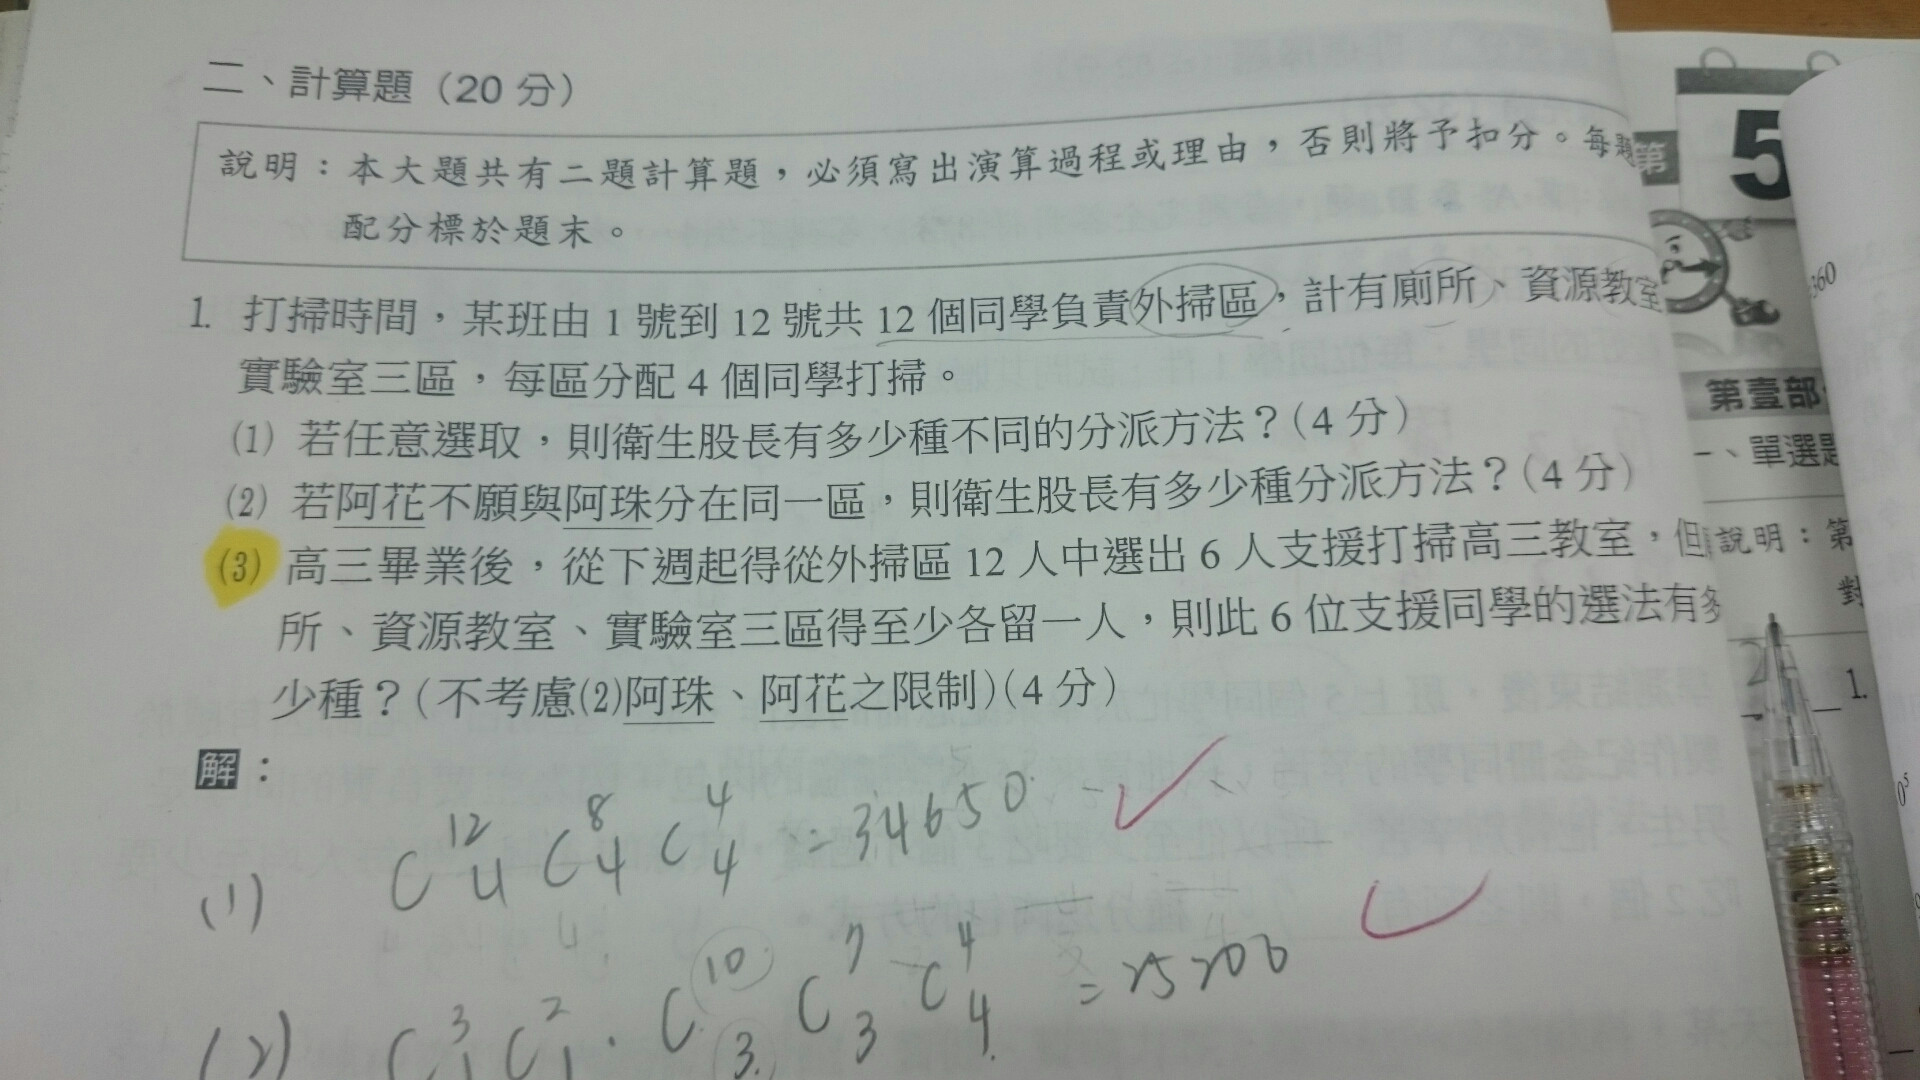 二、計算題（20 分）
說明：本大題共有二題計算題，必須寫出演算過程或理由，否則將予扣分。每題
配分標於題末。
1. 打掃時間，某班由 1 號到 12 號共 12 個同學負責外掃區，計有廁所、資源教室
實驗室三區，每區分配 4 個同學打掃。
(1) 若任意選取，則衛生股長有多少種不同的分派方法？(4 分)
(2) 若阿花不願與阿珠分在同一區，則衛生股長有多少種分派方法？(4 分)
(3) 高三畢業後，從下週起得從外掃區 12 人中選出 6 人支援打掃高三教室，但
所、資源教室、實驗室三區得至少各留一人，則此 6 位支援同學的選法有多
少種？(不考慮(2)阿珠、阿花之限制)(4 分)
解：
(1) C¹²₄ C⁸₄ C⁴₄ = 34650
(2) C³₁ C²₁ · C¹⁰₃ C⁷₃ C⁴₄ = 25200
第
5
360
第壹部
一、單選題
說明：第
對
1.